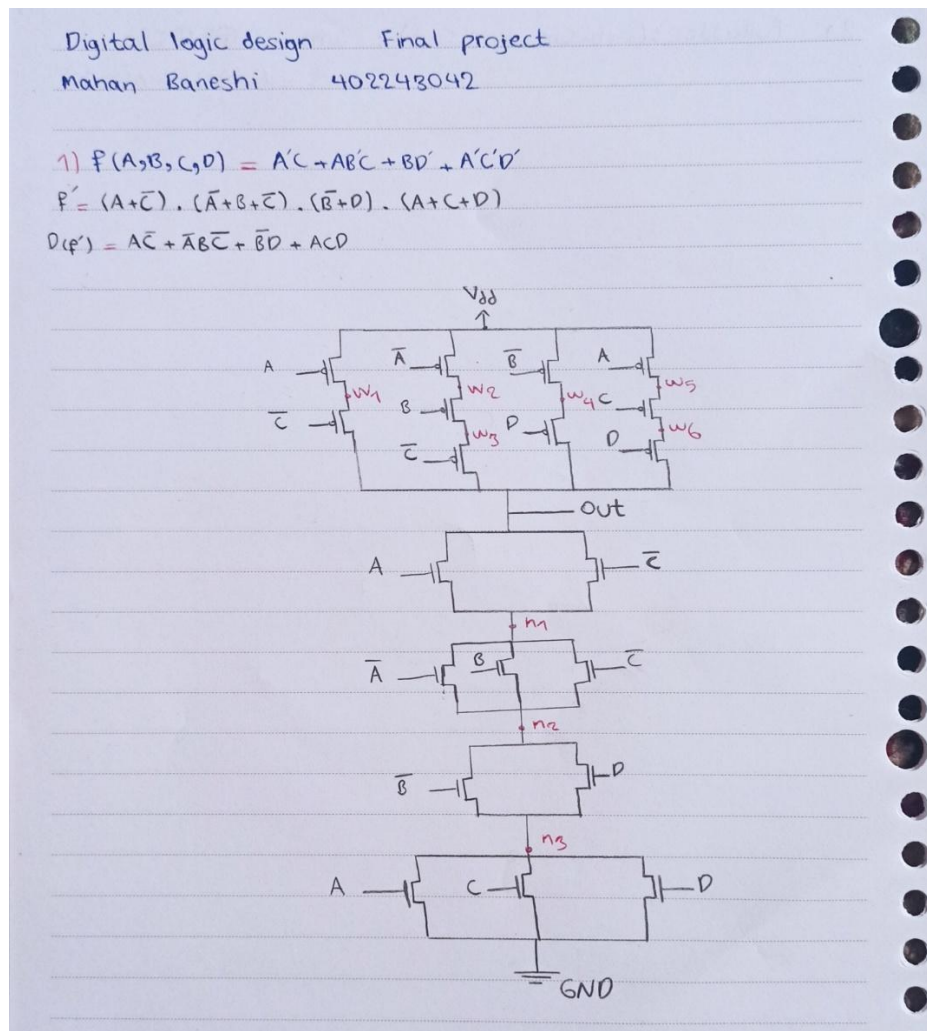 Digital logic design Final project
Mahan Baneshi 402243042
1) f(A,B,C,D) = A'C + AB'C + BD' + A'C'D'
f' = (A+C̅) . (A̅+B+C̅) . (B̅+D) . (A+C+D)
D(f') = AC̅ + A̅BC̅ + B̅D + ACD
Vdd
A A̅ B̅ A
w1 w2 w4 w5
C̅ B D C
w3 w6
C̅ D
out
A C̅
n1
A̅ B C̅
n2
B̅ D
n3
A C D
GND